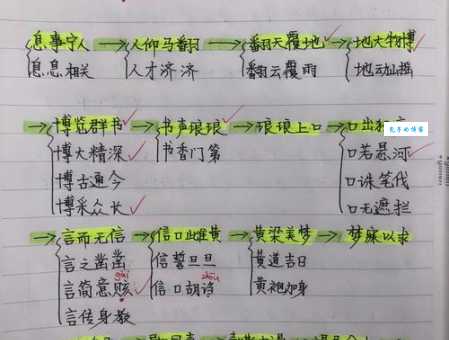 息事宁人 → 人仰马翻 → 翻天覆地 → 地大物博
息息相关 人才济济 翻云覆雨 地动山摇
→ 博览群书 → 书声琅琅 → 琅琅上口 → 口出
博大精深 书香门第 口若悬河
博古通今 口诛笔伐
博采众长 口无遮拦
→ 言而无信 → 信口雌黄 → 黄粱美梦 → 梦寐以求
言之凿凿 信誓旦旦 黄道吉日
gāi zhōu
言简意赅 信口胡诌 黄袍加身
言传身教